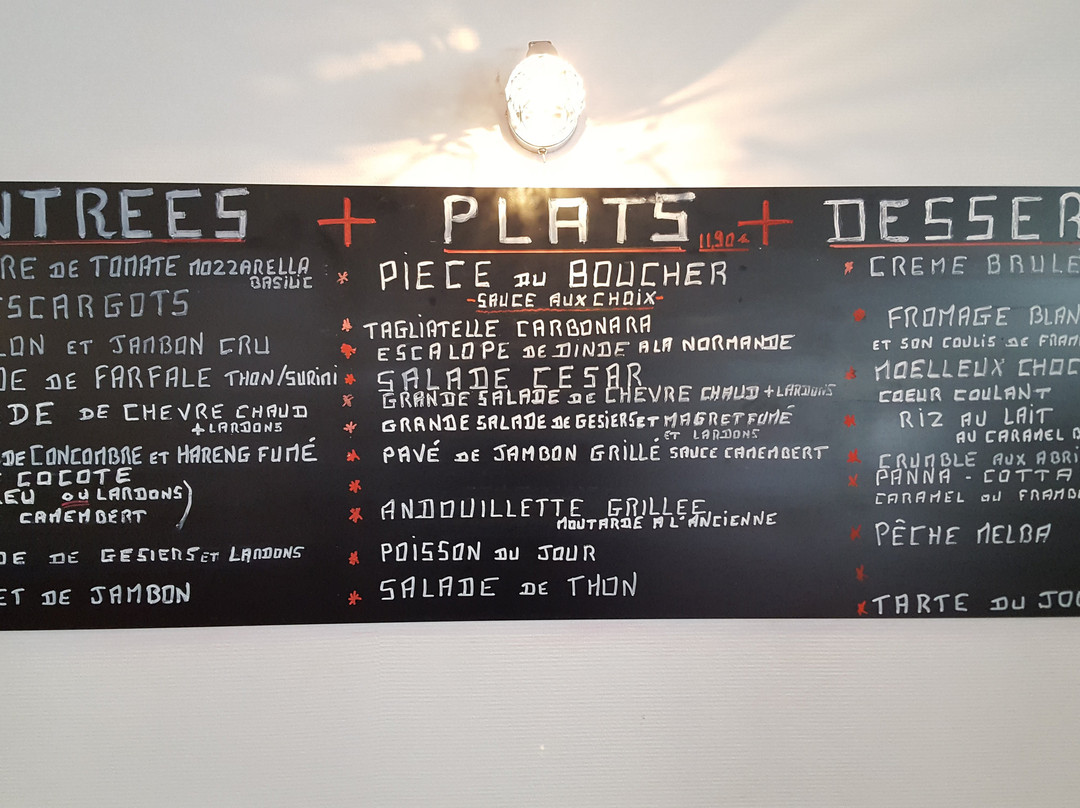 NTREES
RE DE TOMATE MOZZARELLA
BASILIC
ESCARGOTS
LON ET JAMBON CRU
DE DE FARFALE THON/SURIMI
DE DE CHEVRE CHAUD
+ LARDONS
DE CONCOMBRE ET HARENG FUMÉ
COCOTE
EU OU LARDONS)
CAMEMBERT
DE DE GESIERS ET LARDONS
ET DE JAMBON
+ PLATS 11.90€ +
* PIECE DU BOUCHER
-SAUCE AUX CHOIX-
* TAGLIATELLE CARBONARA
* ESCALOPE DE DINDE A LA NORMANDE
* SALADE CESAR
* GRANDE SALADE DE CHEVRE CHAUD + LARDONS
* GRANDE SALADE DE GESIERS ET MAGRET FUMÉ
ET LARDONS
* PAVÉ DE JAMBON GRILLÉ SAUCE CAMEMBERT
*
* ANDOUILLETTE GRILLEE
MOUTARDE A L'ANCIENNE
* POISSON DU JOUR
* SALADE DE THON
DESSER
* CREME BRULE
* FROMAGE BLAN
ET SON COULIS DE FRAM
* MOELLEUX CHOC
COEUR COULANT
* RIZ AU LAIT
AU CARAMEL B
* CRUMBLE AUX ABRI
* PANNA - COTTA
CARAMEL OU FRAMB
* PÊCHE MELBA
*
* TARTE DU JOU